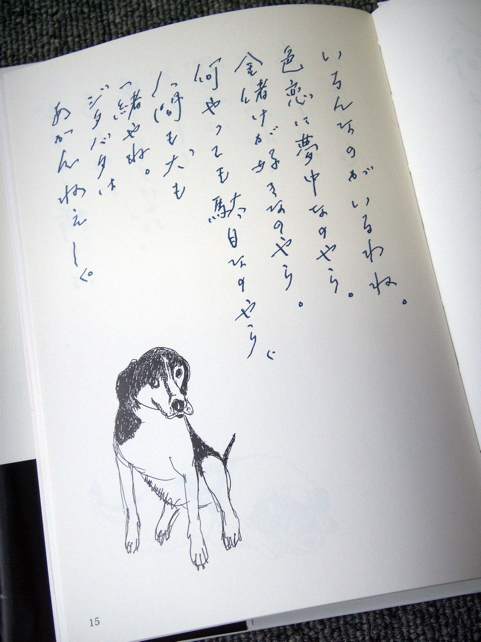 いろんなのがいるわね。
色恋に夢中なのやら。
金儲けが好きなのやら。
何やっても駄目なのやら。
人間も犬も
一緒やね。
ジタバタは
あかんねえー。
15